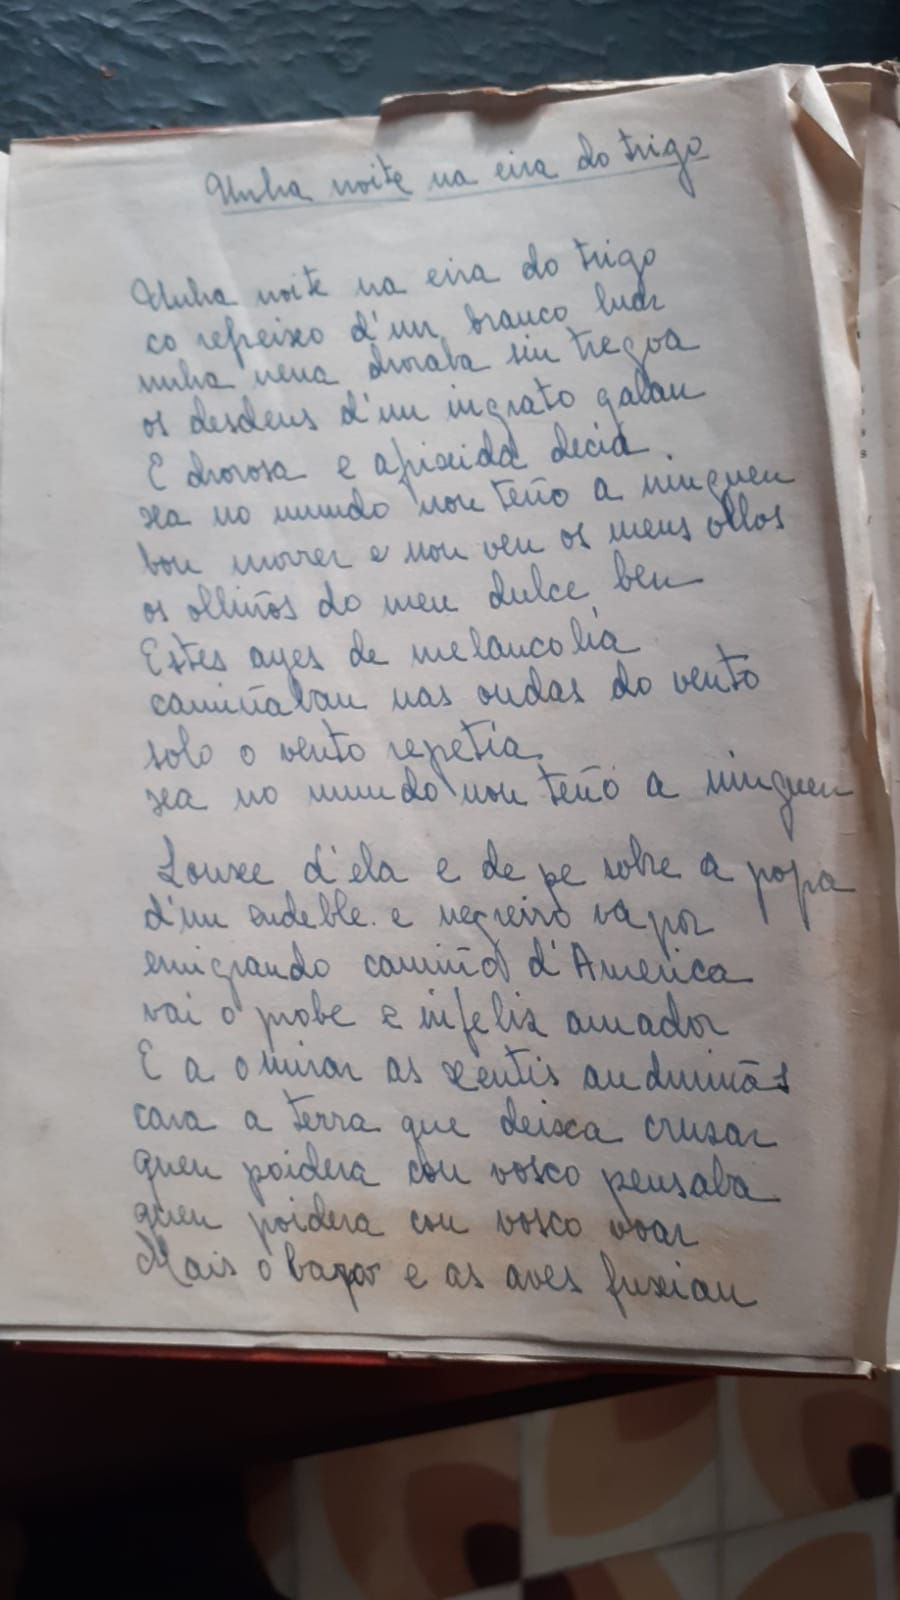 Unha noite na eira do trigo
Unha noite na eira do trigo
co refreixo d'un branco luar
unha nena choraba sin tregoa
os desdens d'un ingrato galan
E chorosa e afrixida decia
xa no mundo non teño a ninguen
bou morrer e non ven os meus ollos
os olliños do meu dulce ben
Estes ayes de melancolia
camiñaban nas ondas do vento
solo o vento repetia
xa no mundo non teño a ninguen
Lonxe d'ela e de pe sobre a popa
d'un endeble e negreiro vapor
emigrando camiño d'America
vai o probe e infeliz amador
E a o mirar as xentis anduriñas
cara a terra que deixa crusar
quen poidera con vosco pensaba
quen poidera con vosco voar
Mais o bapor e as aves fuxian